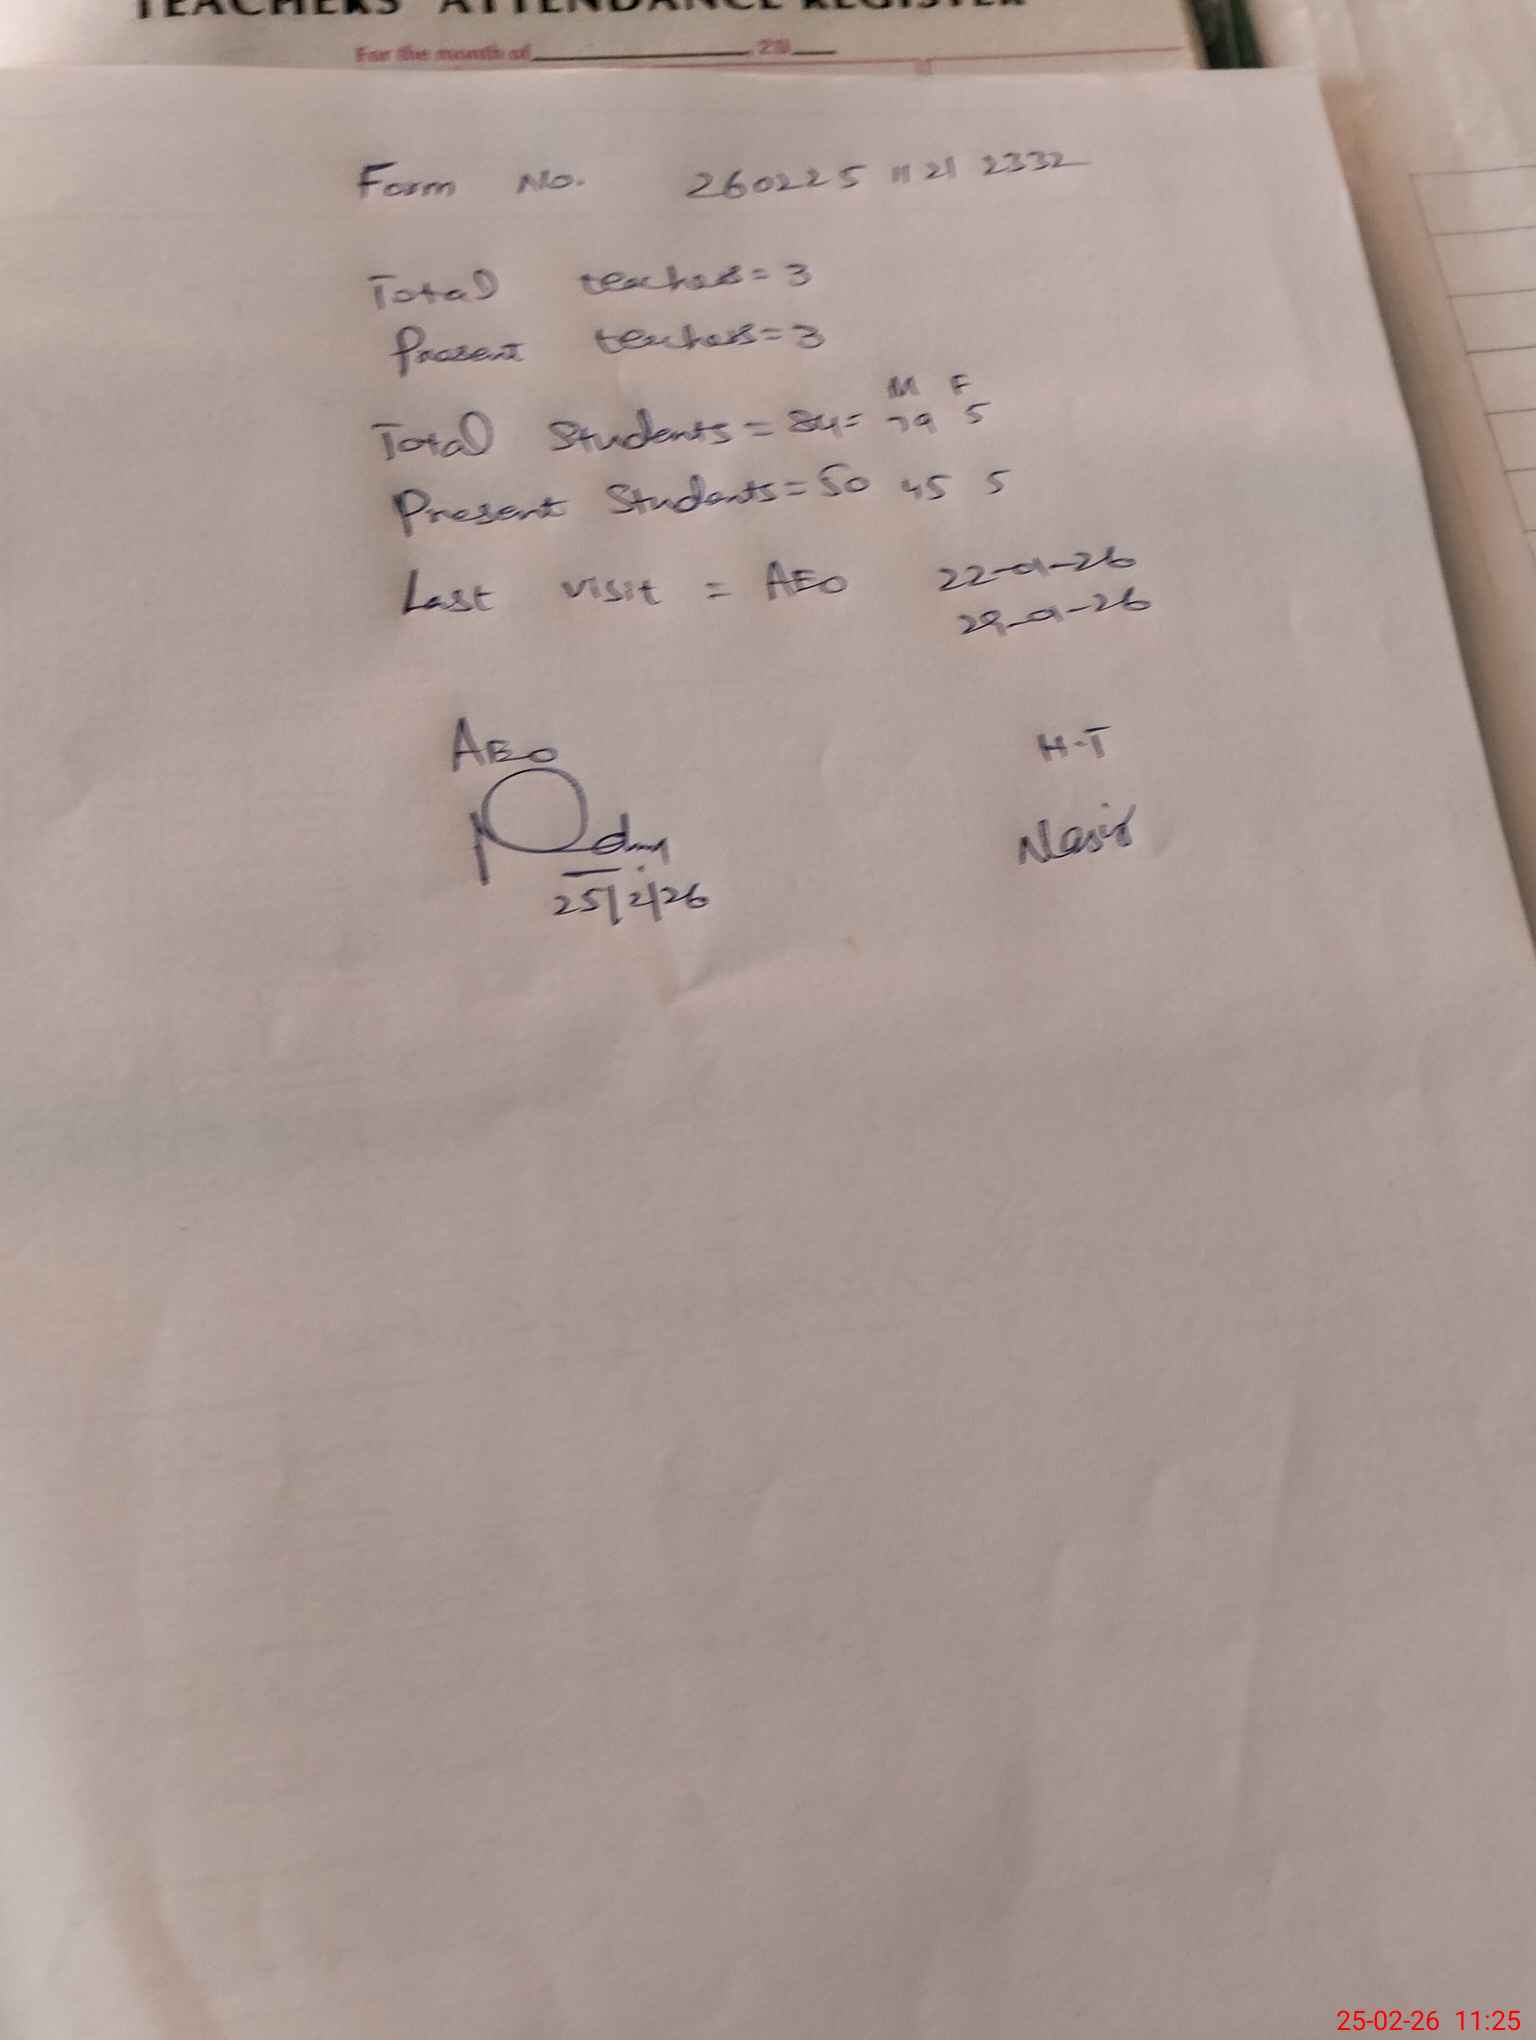 TEACHERS ATTENDANCE REGISTER
For the month of 20
Form No. 260225 11 21 2332
Total teachers = 3
Present teachers = 3
M F
Total Students = 84 = 79 5
Present Students = 50 45 5
Last visit = AEO 22-01-26
29-01-26
AEO
H-T
Nasir
25/2/26
25-02-26 11:25